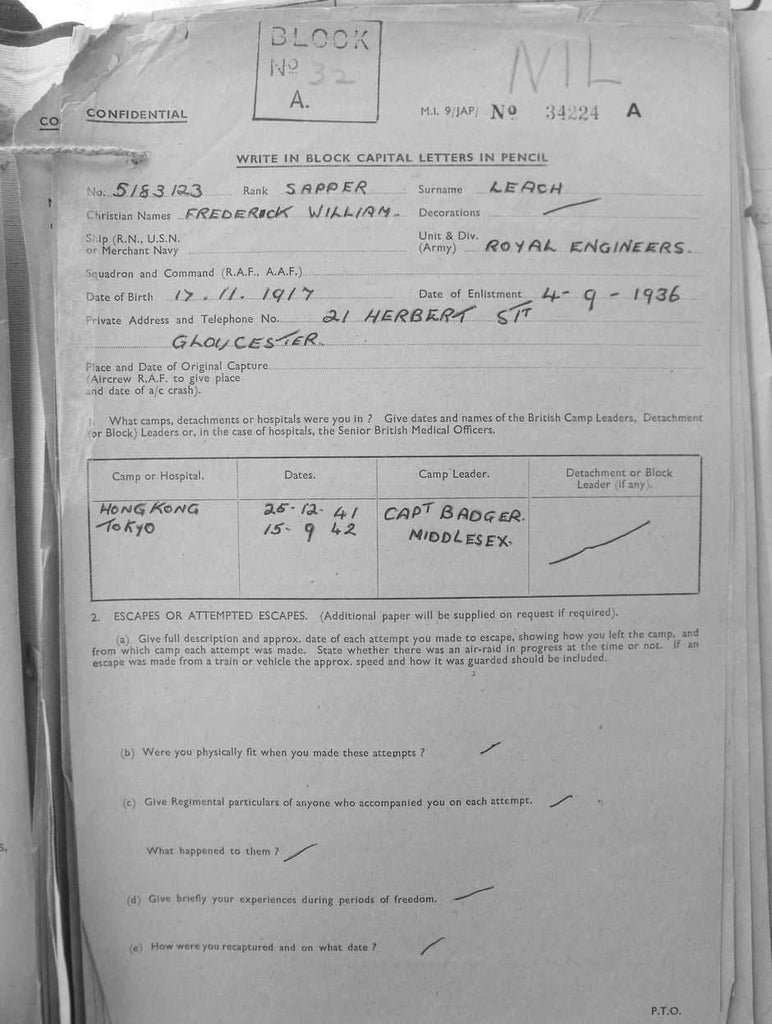 BLOCK
Nº 32
A.
NIL
CO
CONFIDENTIAL
M.I. 9/JAP/ Nº 34224 A
WRITE IN BLOCK CAPITAL LETTERS IN PENCIL
No. 5183123 Rank SAPPER Surname LEACH
Christian Names FREDERICK WILLIAM. Decorations
Ship (R.N., U.S.N. or Merchant Navy
Unit & Div. (Army) ROYAL ENGINEERS.
Squadron and Command (R.A.F., A.A.F.)
Date of Birth 17.11.1917 Date of Enlistment 4-9-1936
Private Address and Telephone No. 21 HERBERT STT
GLOUCESTER.
Place and Date of Original Capture
(Aircrew R.A.F. to give place
and date of a/c crash).
1. What camps, detachments or hospitals were you in ? Give dates and names of the British Camp Leaders, Detachment
(or Block) Leaders or, in the case of hospitals, the Senior British Medical Officers.
Camp or Hospital. Dates. Camp Leader. Detachment or Block Leader (if any).
HONG KONG 25-12-41 CAPT BADGER.
TOKYO 15-9 42 MIDDLESEX.
2. ESCAPES OR ATTEMPTED ESCAPES. (Additional paper will be supplied on request if required).
(a) Give full description and approx. date of each attempt you made to escape, showing how you left the camp, and
from which camp each attempt was made. State whether there was an air-raid in progress at the time or not. If an
escape was made from a train or vehicle the approx. speed and how it was guarded should be included.
(b) Were you physically fit when you made these attempts ?
(c) Give Regimental particulars of anyone who accompanied you on each attempt.
What happened to them ?
s.
(d) Give briefly your experiences during periods of freedom.
(e) How were you recaptured and on what date ?
P.T.O.